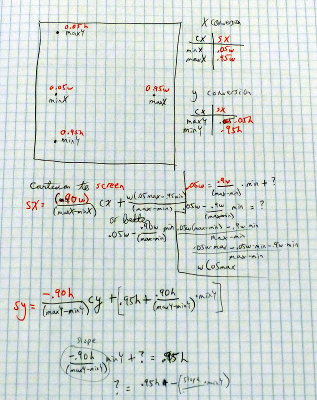 0.05h
maxY
X Conversion
cx | sx
minX | .05w
maxX | .95w
0.05w
minX
0.95w
maxX
y conversion
cx | sx
maxY | .05h
minY | .95h
0.95h
minY
Cartesian to screen
sx = (.90w)/(maxX-minX) cx + w(.05max-.95min)/(max-min)
or better
.05w - .90w/(max-min) min
.05w = .9w/(max-min) · min + ?
.05w - .9w/(max-min) min = ?
.05w(max-min) - .9w min
max-min
.05w max - .05w min - .9w min
max-min
w(.05max
sy = -.90h/(maxY-minY) cy + [.95h + .90h/(maxY-minY) · minY]
slope
-.90h/(maxY-minY) minY + ? = .95h
? = .95h - (slope · minY)